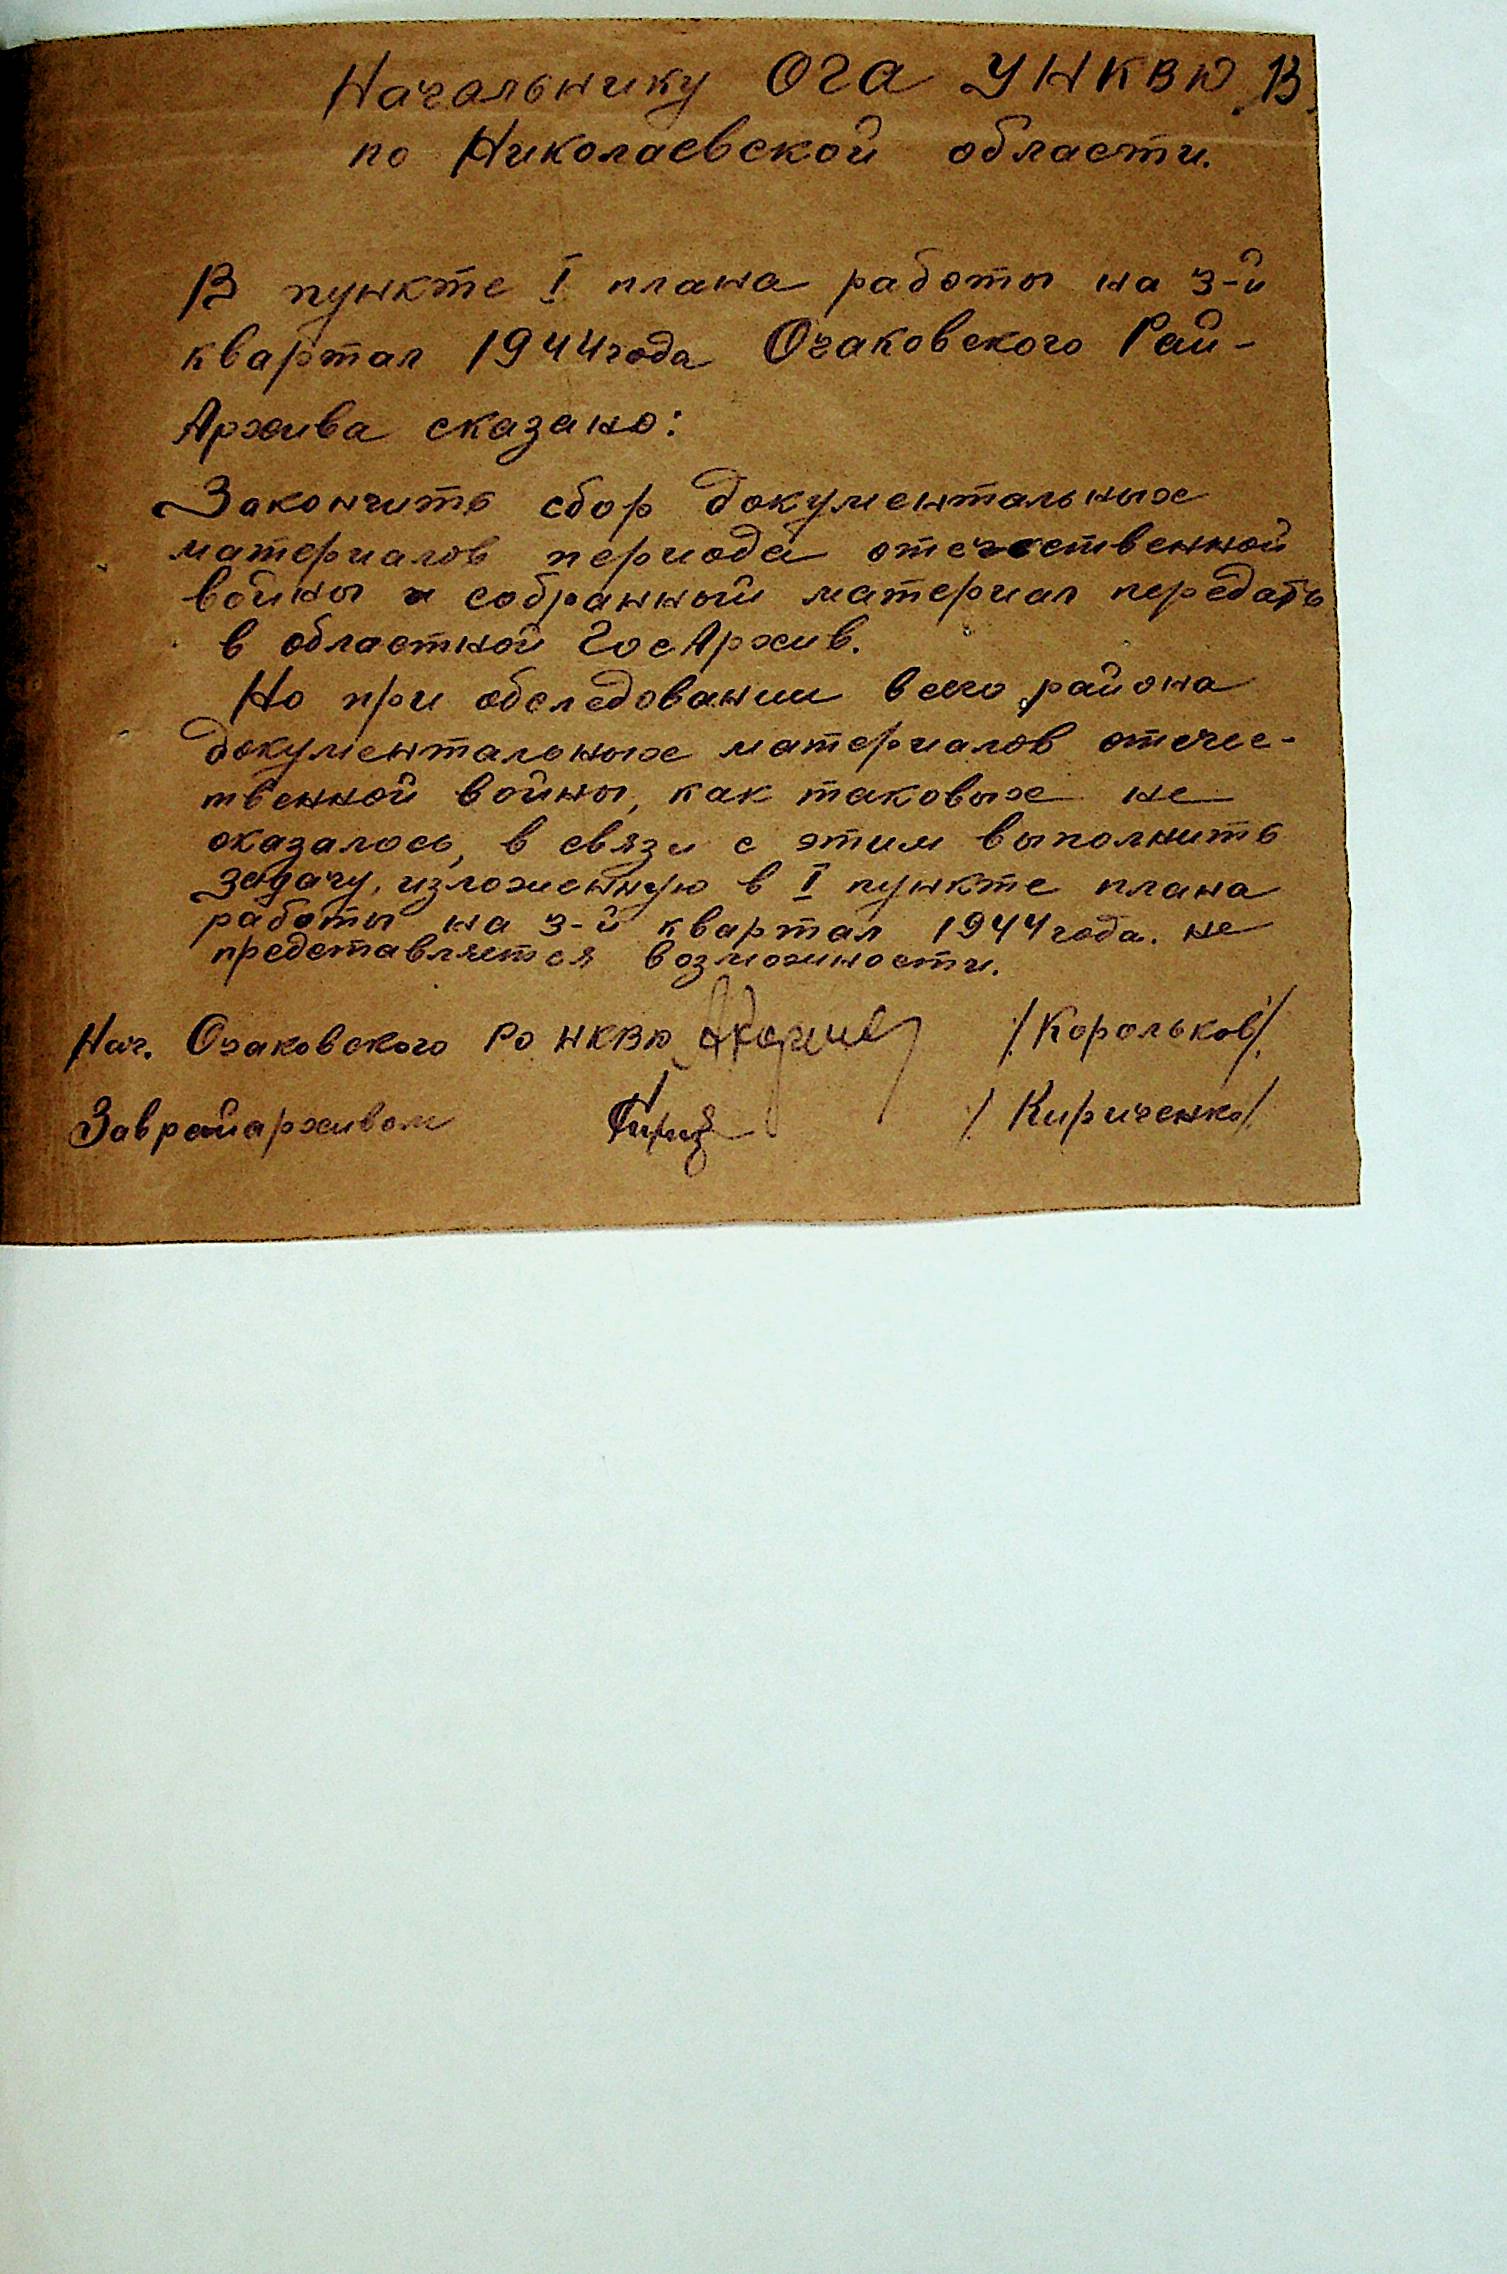 Начальнику ОГА УНКВД 13
по Николаевской области.
В пункте I плана работы на 3-й
квартал 1944 года Очаковского Рай-
Архива сказано:
Закончить сбор документальных
материалов периода отечественной
войны и собранный материал передать
в областной ГосАрхив.
Но при обследовании всего района
документальных материалов отечес-
твенной войны, как таковых не
оказалось, в связи с этим выполнить
задачу, изложенную в I пункте плана
работы на 3-й квартал 1944 года. не
представляется возможности.
Нач. Очаковского РО НКВД /Корольков/.
Заврайархивом /Кириченко/.